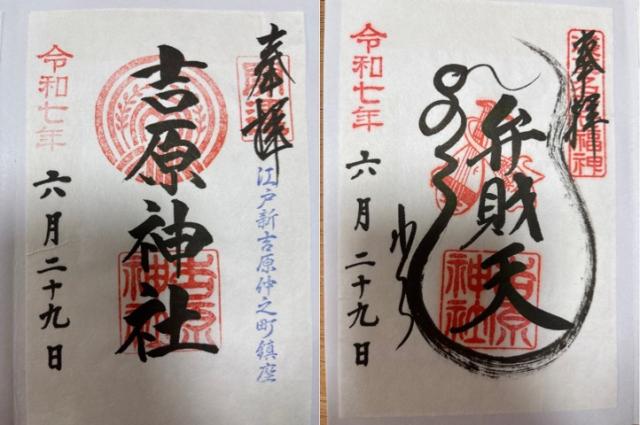 奉拝
江戸新吉原仲之町鎮座
吉原神社
吉原神社
令和七年
六月二十九日
奉拝
弁財天
吉原神社
令和七年
六月二十九日